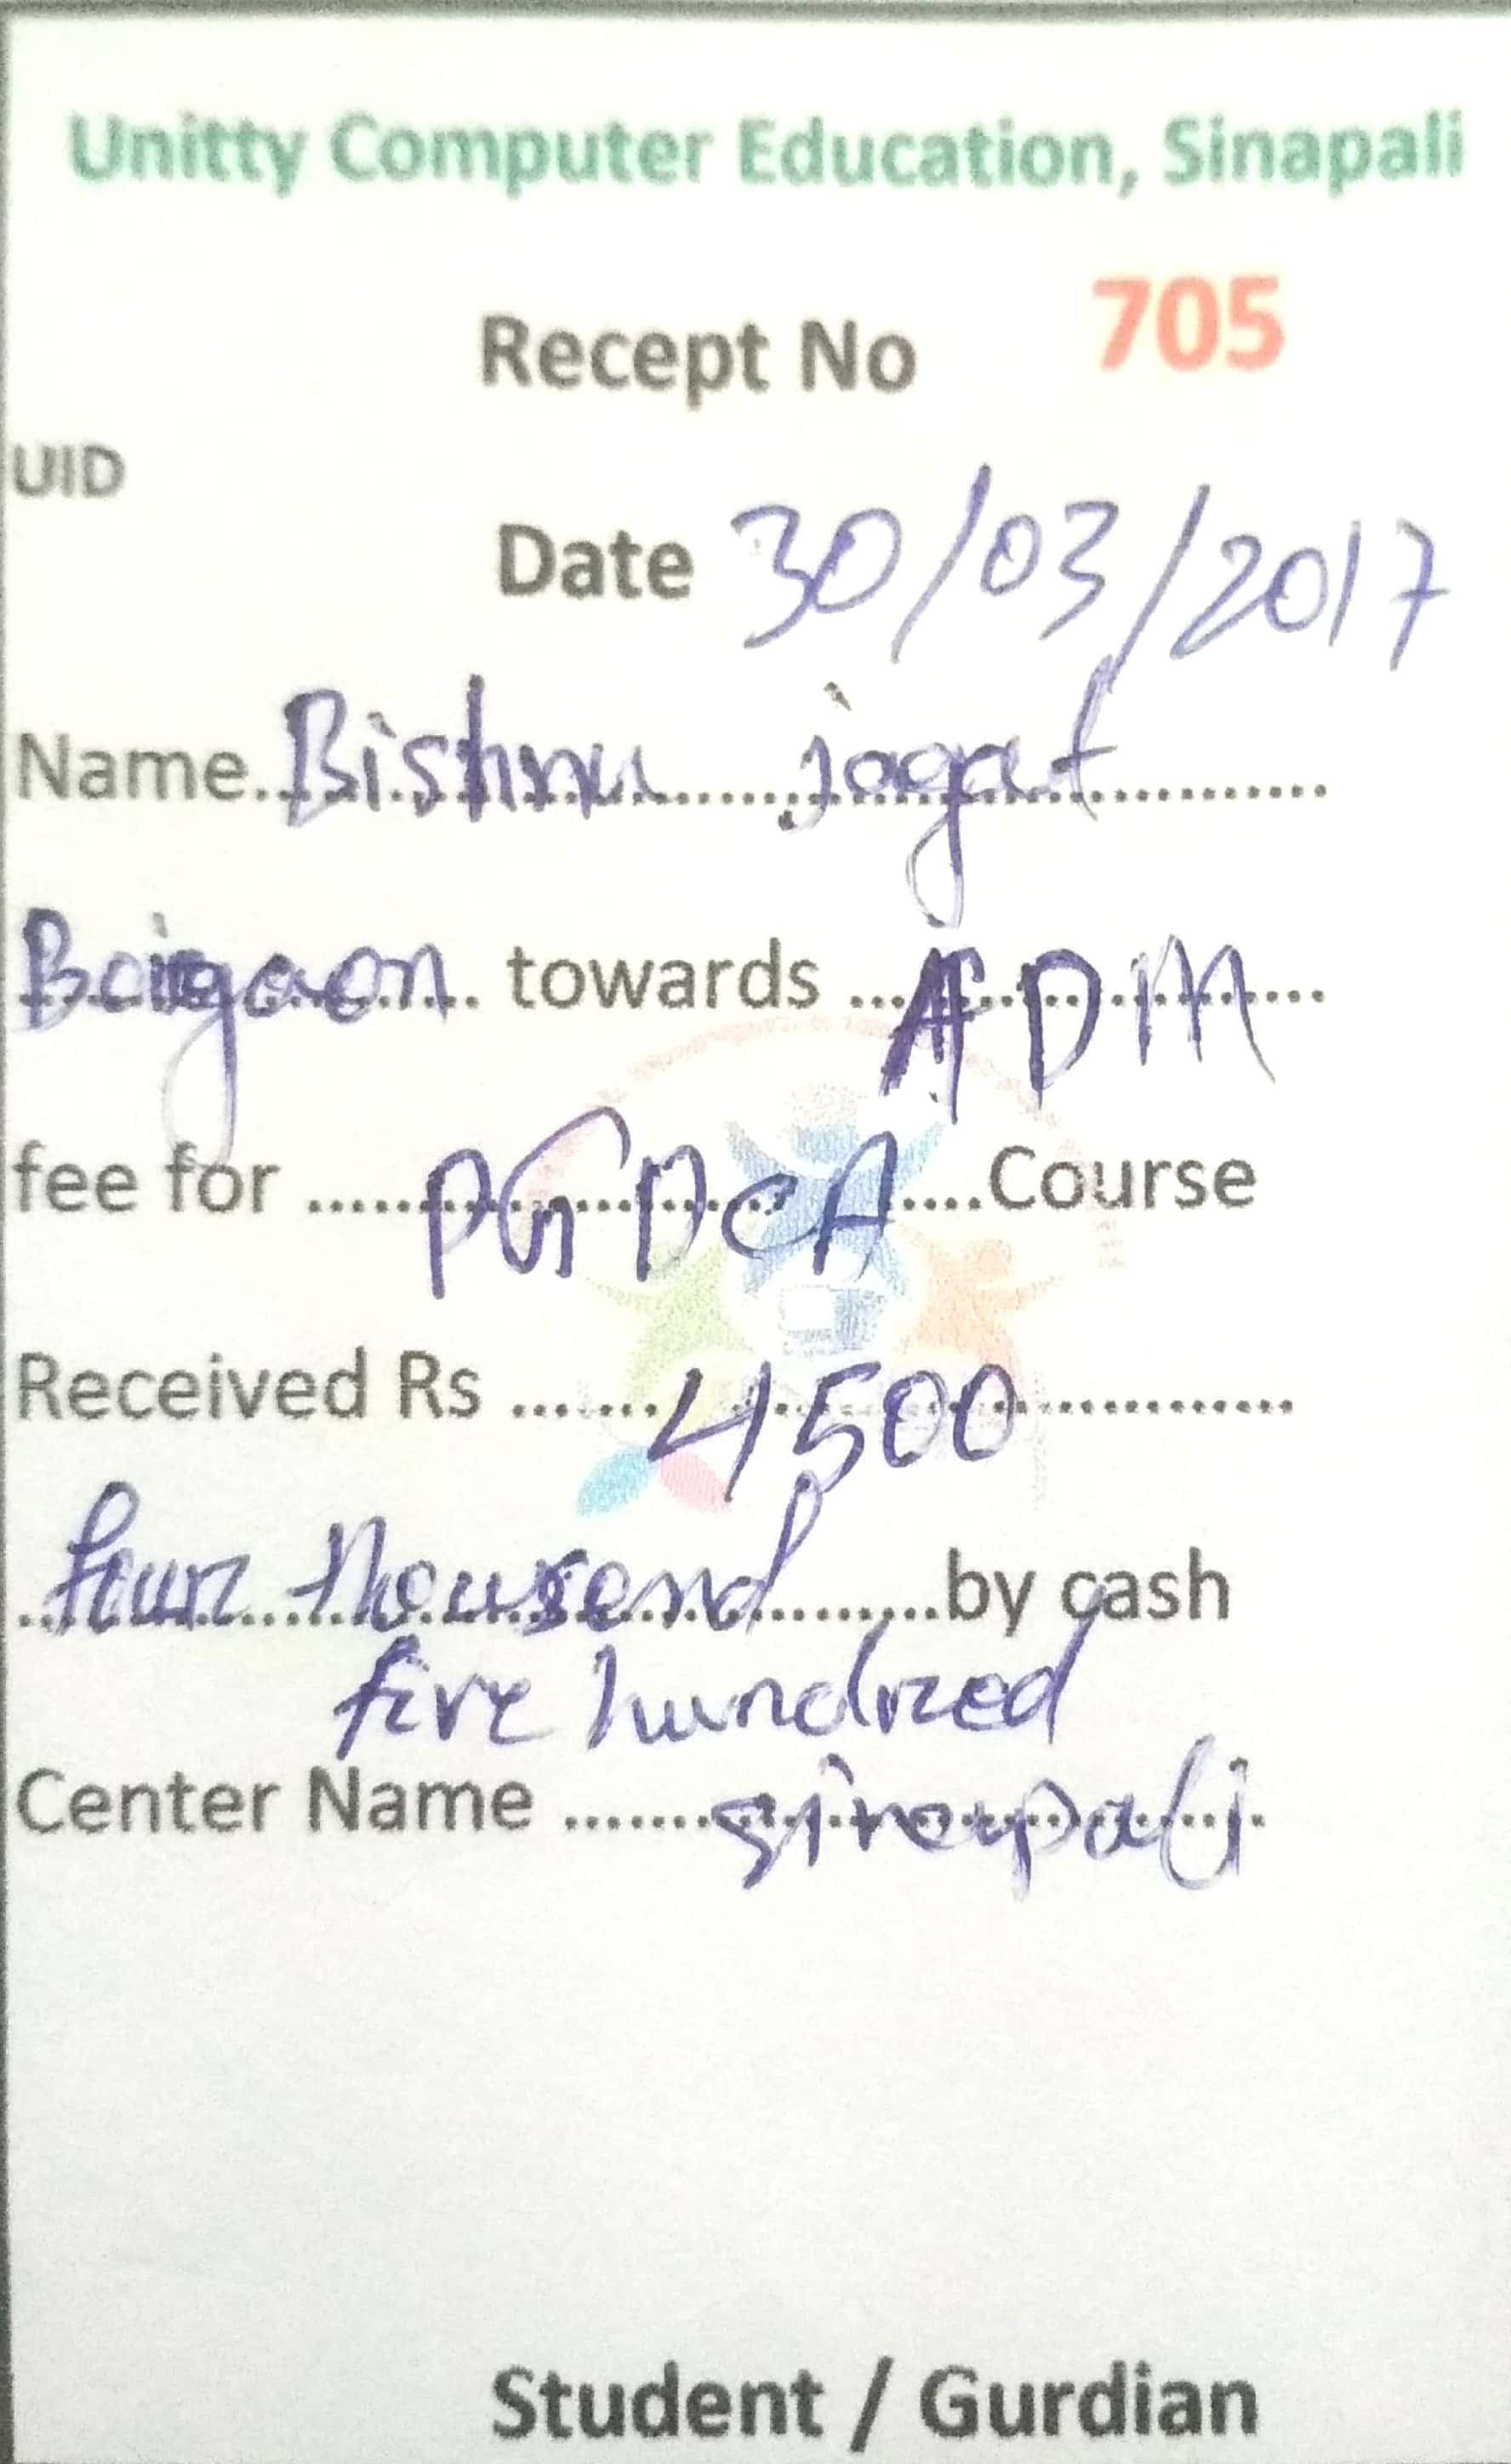 Unitty Computer Education, Sinapali
Recept No 705
UID
Date 30/03/2017
Name Bishnu jagat
Boigaon towards ADM
fee for PGDCA Course
Received Rs 4500
four thousend by cash
five hundred
Center Name sinapali
Student / Gurdian